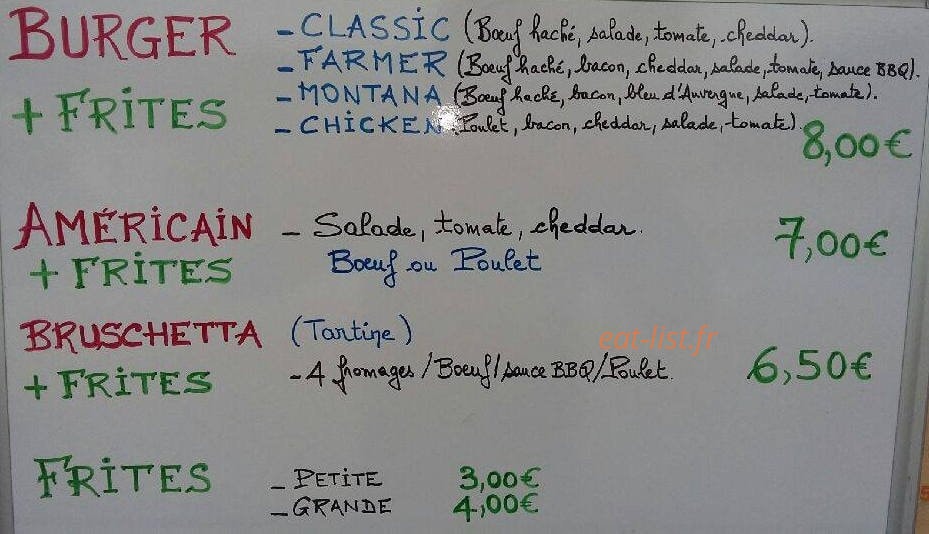 BURGER
+ FRITES
- CLASSIC (Bœuf haché, salade, tomate, cheddar).
- FARMER (Bœuf haché, bacon, cheddar, salade, tomate, sauce BBQ).
- MONTANA (Bœuf haché, bacon, bleu d'Auvergne, salade, tomate).
- CHICKEN (Poulet, bacon, cheddar, salade, tomate).
8,00€
AMÉRICAIN - Salade, tomate, cheddar.
+ FRITES Bœuf ou Poulet
7,00€
BRUSCHETTA (Tartine)
eat-list.fr
+ FRITES - 4 fromages / Boeuf / sauce BBQ / Poulet.
6,50€
FRITES
- PETITE 3,00€
- GRANDE 4,00€